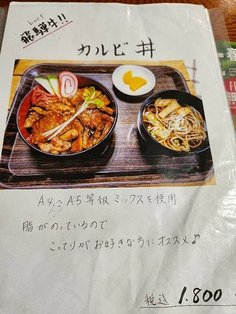 beef
飛騨牛!!
カルビ丼
A4、A5等級ミックスを使用
脂がのっているので
こってりがお好きな方にオススメ♪
税込 1.800